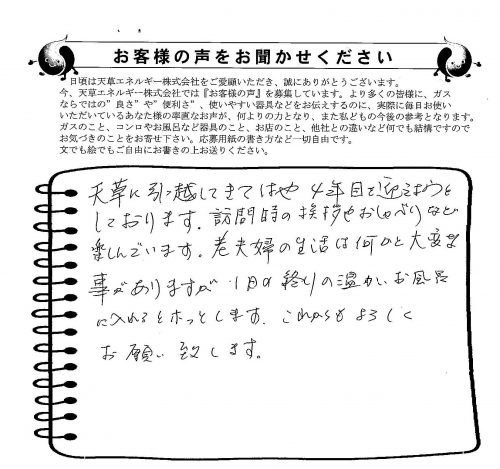 お客様の声をお聞かせください
日頃は天草エネルギー株式会社をご愛顧いただき、誠にありがとうございます。
今、天草エネルギー株式会社では『お客様の声』を募集しています。より多くの皆様に、ガス
ならではの"良さ"や"便利さ"、使いやすい器具などをお伝えするのに、実際に毎日お使い
いただいているあなた様の率直なお声が、何よりの力となり、また私どもの今後の参考となります。
ガスのこと、コンロやお風呂など器具のこと、お店のこと、他社との違いなど何でも結構ですので
お気づきのことをお寄せ下さい。応募用紙の書き方など一切自由です。
文でも絵でもご自由にお書きの上お送りください。
天草に引っ越してきてはや4年目を迎えようと
しております。訪問時の挨拶やおしゃべりなど
楽しんでいます。老夫婦の生活は何かと大変な
事がありますが1日の終りの温かいお風呂
に入れるとホッとします。これからもよろしく
お願い致します。